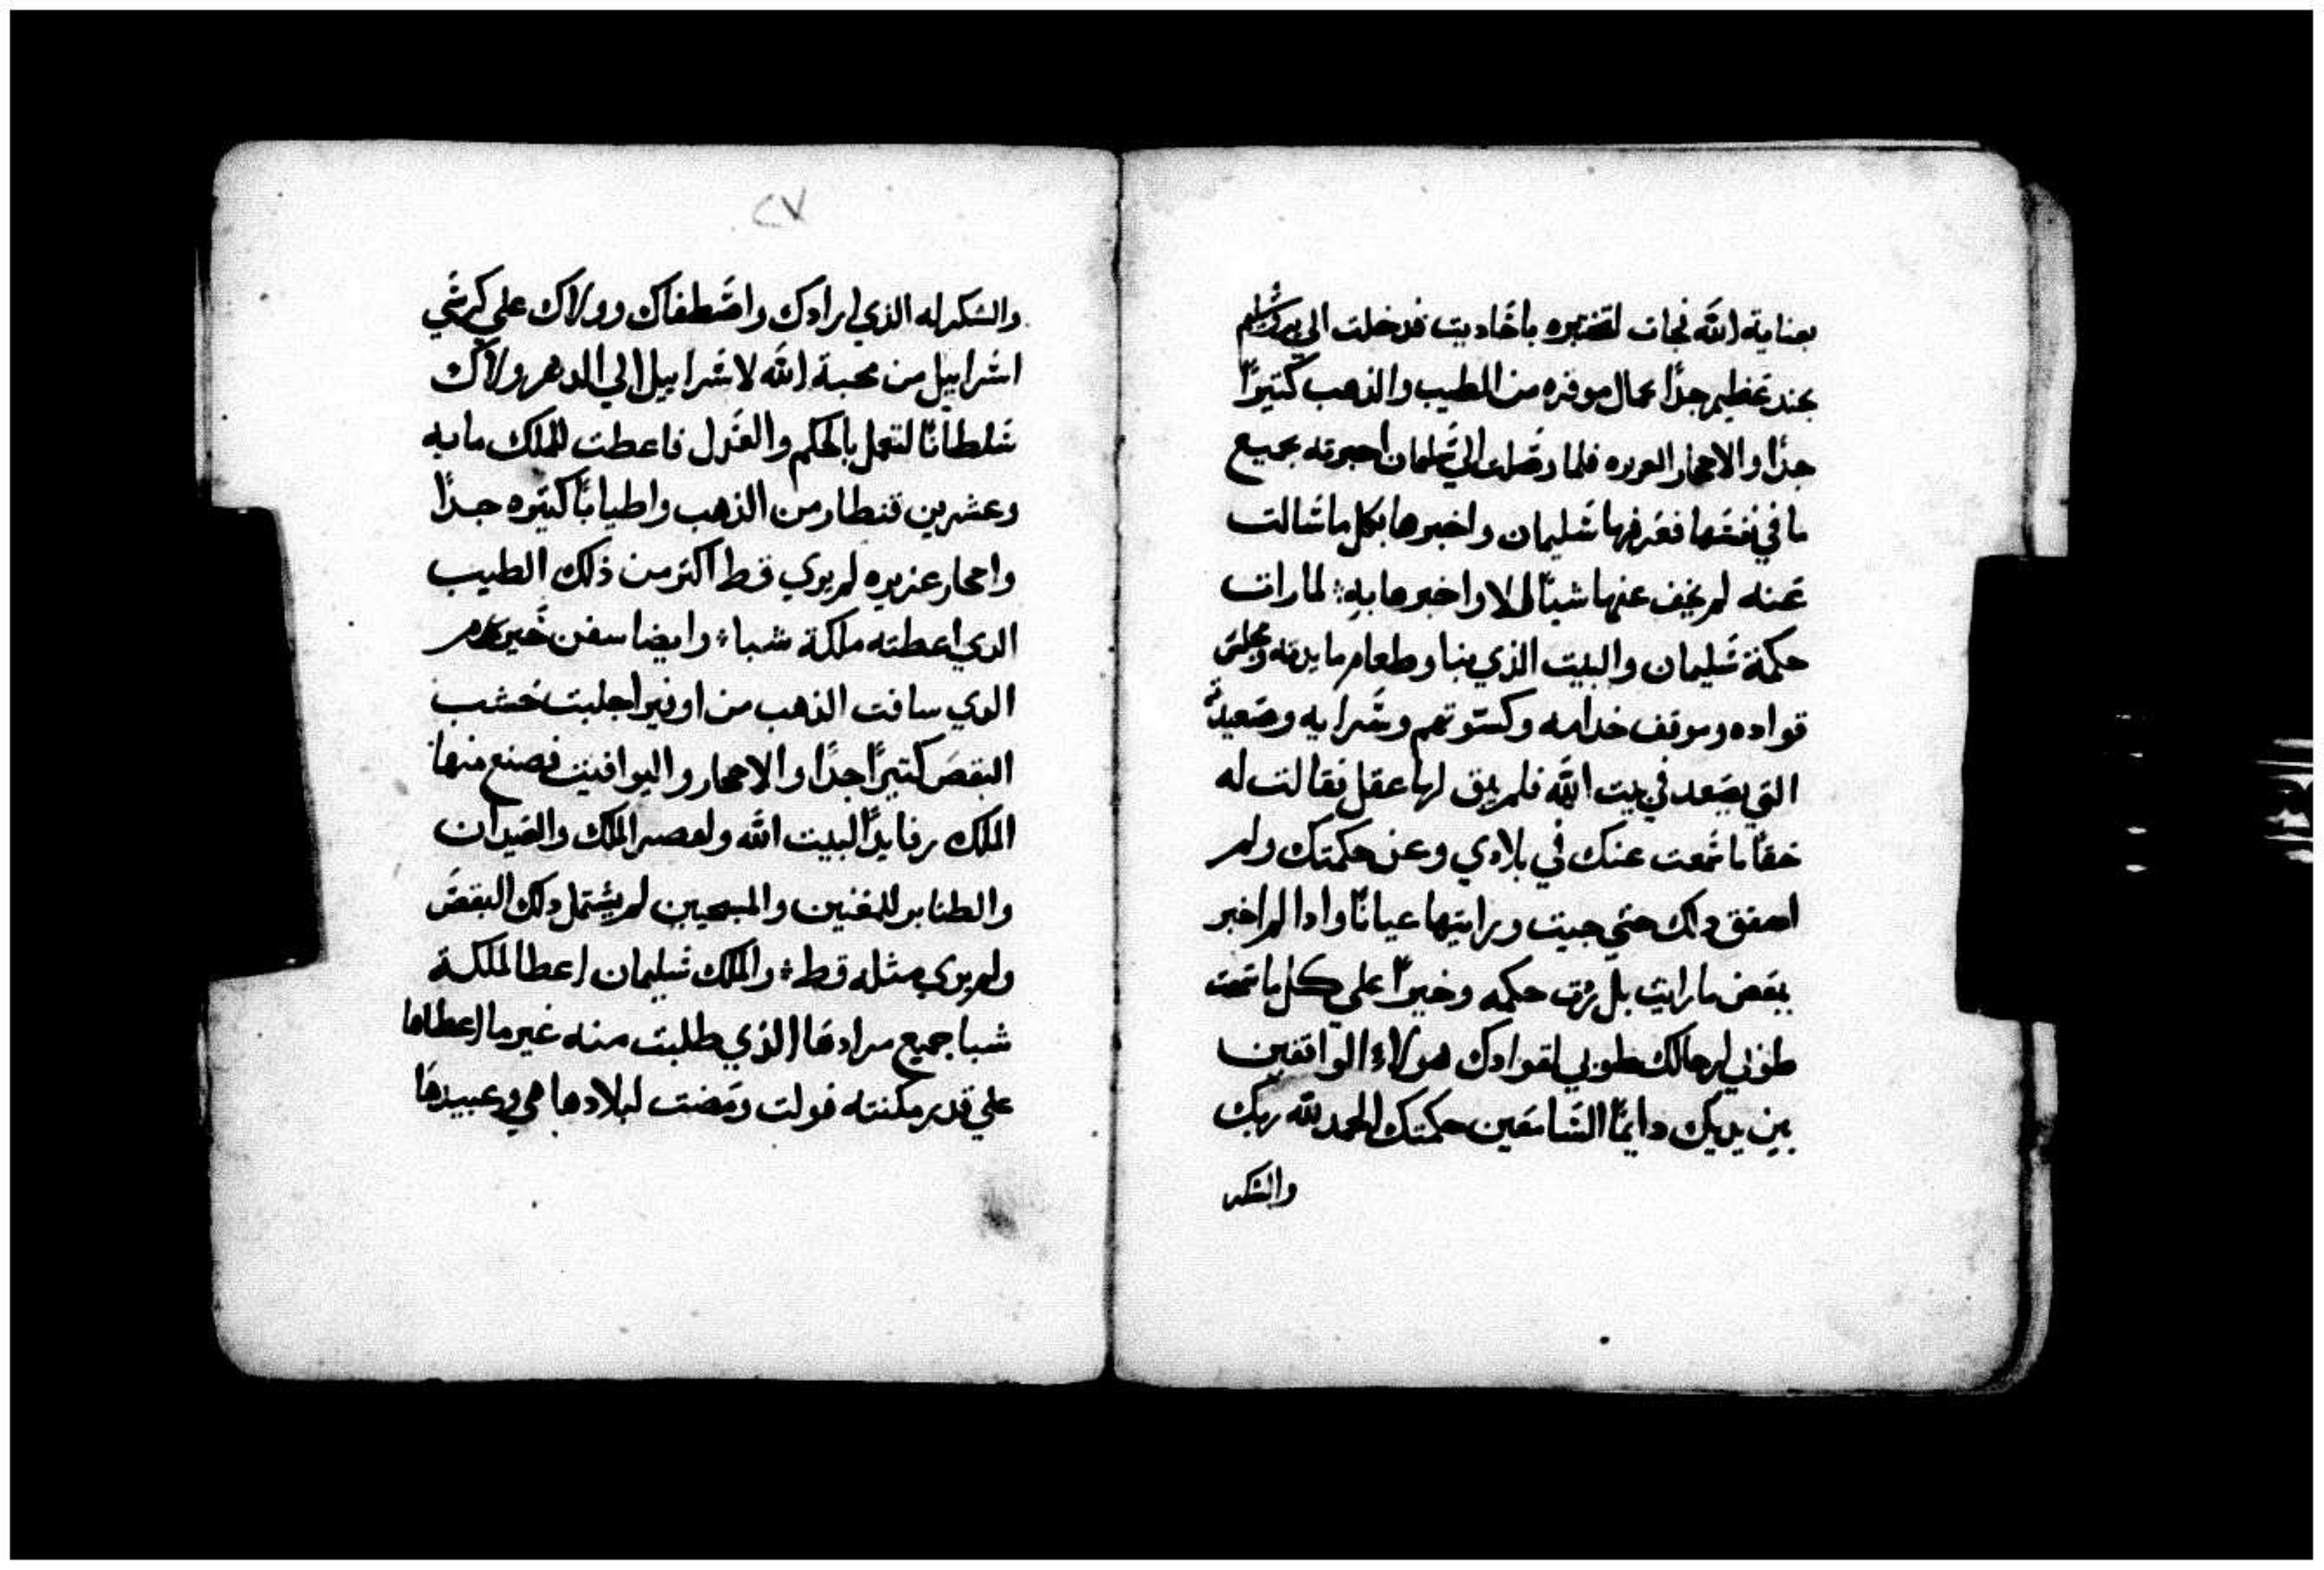 بعناية الله فجات لتختبره باحاديت فدخلت الي يروشليم
بجند عظيم جدًا بجمال موقره من الطيب والذهب كتيرًا
جدًا والاحجار العزيزه فلما وصلت الي سليمان اخبرته بجميع
ما في نفسها فعرفها سليمان واخبرها بكل ما سالت
عنه لم يخف عنها شيًا الا واخبرها به لما رات
حكمة سليمان والبيت الذي بنا وطعام مايدته ومجلس
قواده وموقف خدامه وكسوتهم وشرابه وصعيدته
التي يصعد في بيت الله فلم يبق لها عقل فقالت له
حقًا ما سمعت عنك في بلادي وعن حكمتك ولم
اصدق دلك حتي جيت ورايتها عيانًا وادا لم اخبر
ببعض ما رايت بل زدت حكمه وخيرًا علي كل ما سمعت
طوبي لرجالك طوبي لقوادك هولاء الواقفين
بين يديك دايمًا السامعين حكمتك الحمد لله ربك
والشكر
٢٧
والشكر له الذي ارادك واصطفاك وولاك علي كرسي
اسراييل من محبة الله لاسراييل الي الدهر وولاك
سلطانًا لتعمل بالحكم والعدل فاعطت للملك مايه
وعشرين قنطار من الذهب واطيابًا كتيره جدًا
واحجار عزيزه لم يري قط اكتر من ذلك الطيب
الدي اعطته ملكة شبا وايضا سفن حيرام
الدي ساقت الذهب من اوفير اجلبت خشب
البقص كتيرًا جدًا والاحجار واليواقيت فصنع منها
الملك رفايدًا لبيت الله ولقصر الملك والعيدان
والطنابر للمغنين والمسبحين لم يشتمل دلك البقص
ولم يري مثله قط والملك سليمان اعطا لملكة
شبا جميع مرادها الذي طلبت منه غير ما اعطاها
علي قدر مكنته فولت ومضت لبلادها هي وعبيدها